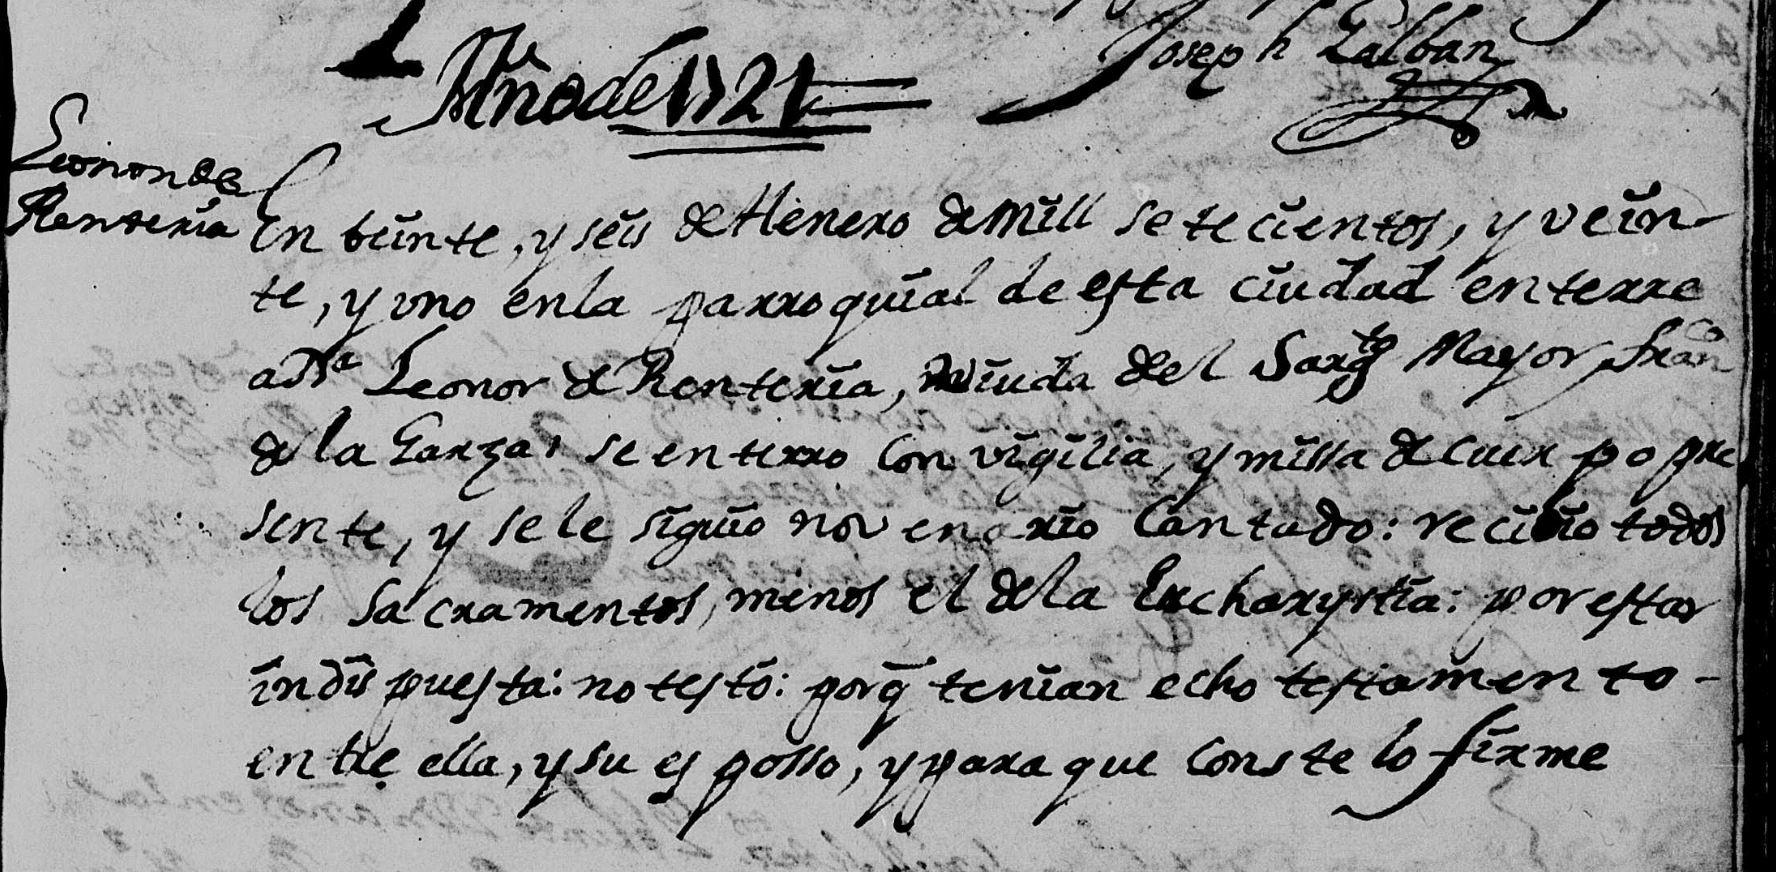 Joseph Galban
Año de 1721
Leonor de
Renteria
En beinte, y seis de Henero de mill setecientos, y vein-
te, y uno en la parroquial de esta ciudad enterre
a Dª Leonor de Renteria, viuda del Sargto Mayor Franco
de la Garza, se enterro con vigilia, y missa de cuerpo pre
sente, y se le siguio novenario cantado: recibio todos
los sacramentos, menos el de la Eucharystia: por estar
indispuesta: no testó: porq̄ tenian echo testamento -
entre ella, y su esposso, y para que conste lo firme